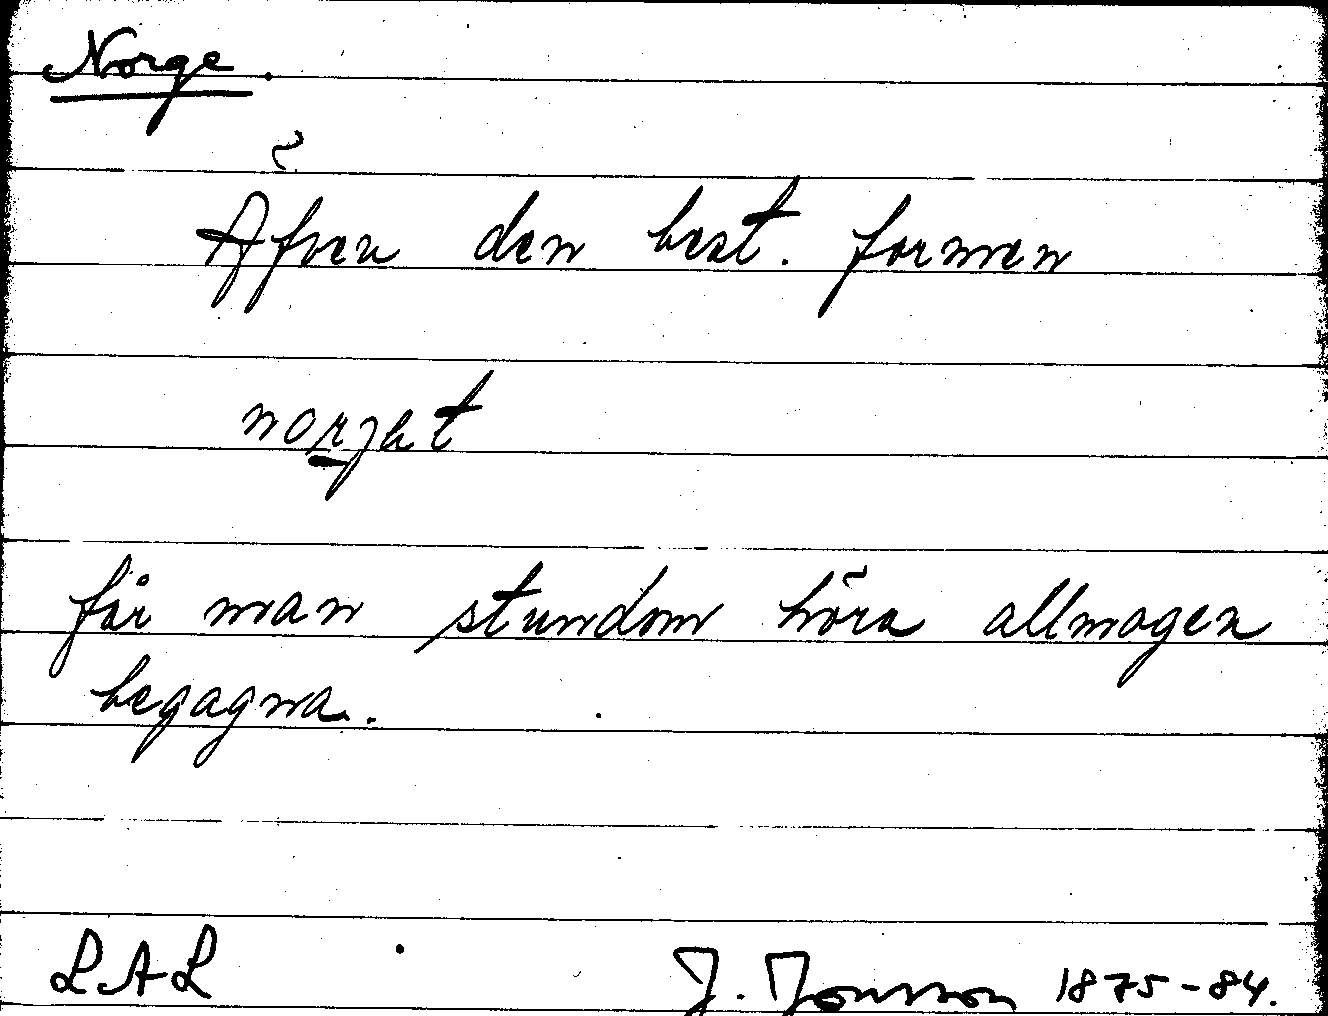 Norge.
Äfven den best. formen
norjet
får man stundom höra allmogen
begagna.
LAL J. Jonsson 1875-84.